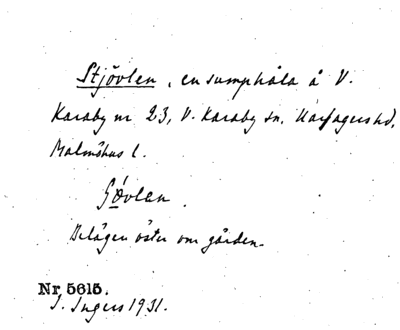 Stjövlen, en sumphåla å V.
Karaby nr 23, V. Karaby sn. Harjagers hd,
Malmöhus l.
Belägen öster om gården.
Nr 5615.
I. Ingers 1931.